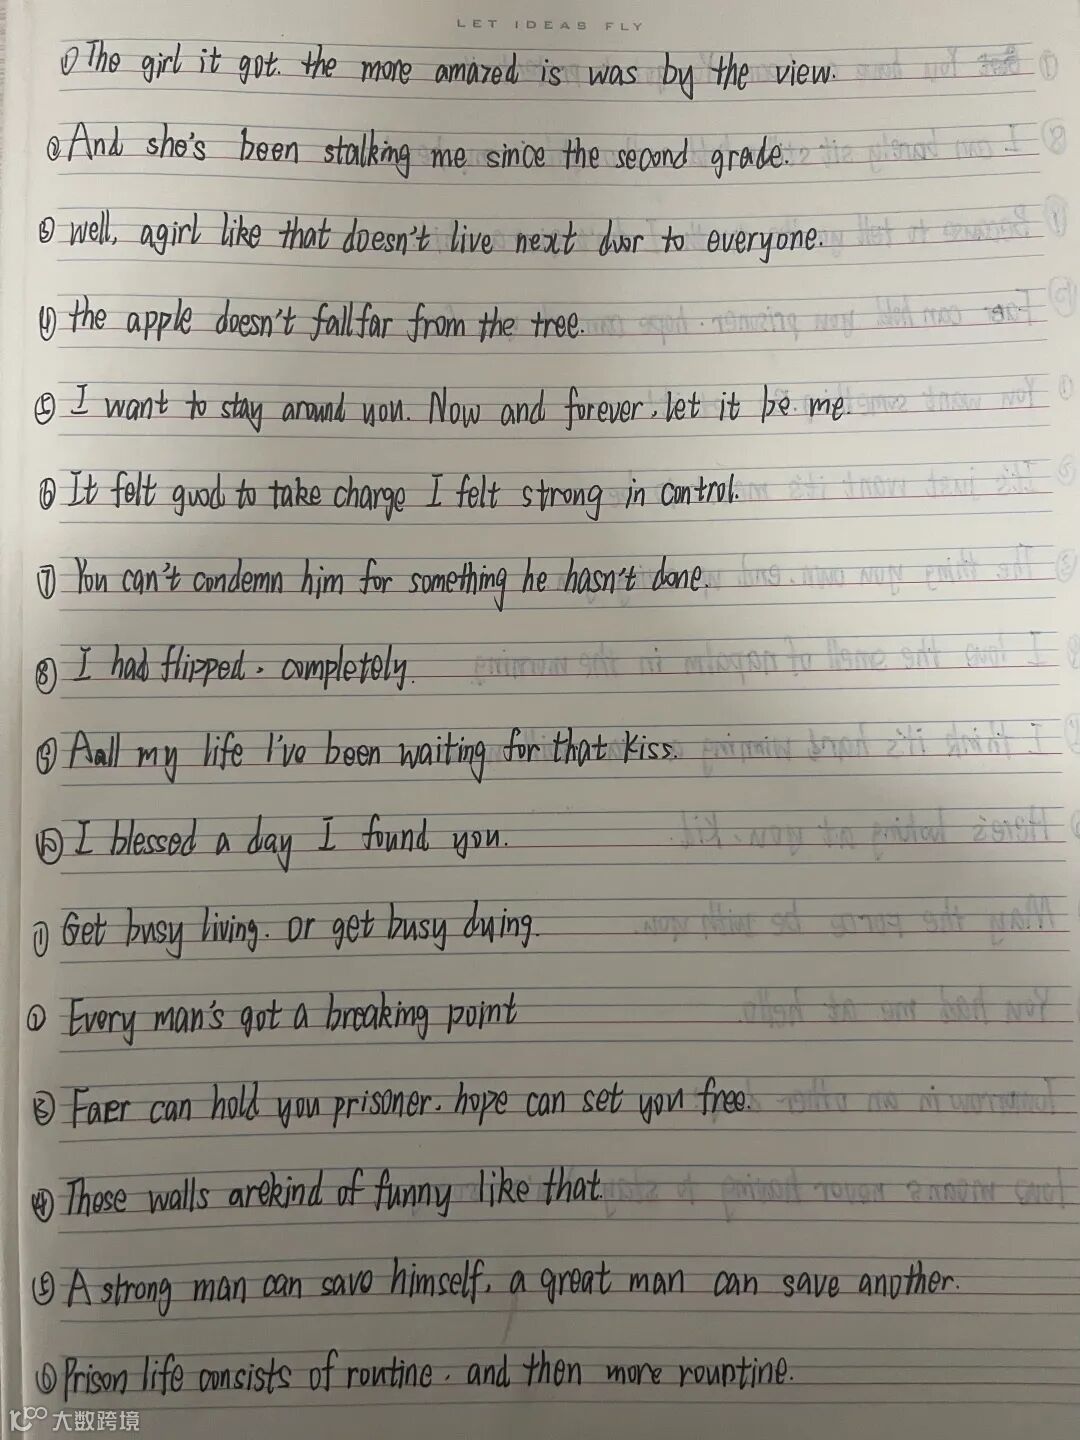 LET IDEAS FLY
① The girl it got. the more amazed is was by the view.
② And she's been stalking me since the second grade.
③ well, agirl like that doesn't live next duor to everyone.
④ the apple doesn't fallfar from the tree.
⑤ I want to stay around you. Now and forever, let it be me.
⑥ It felt guod to take charge I felt strong in control.
⑦ You can't condemn him for something he hasn't done.
⑧ I had flipped. completely.
⑨ Aall my life I've been waiting for that kiss.
⑩ I blessed a day I found you.
① Get busy living. or get busy dying.
② Every man's got a breaking point
③ Faer can hold you prisoner. hope can set you free.
④ These walls arekind of funny like that.
⑤ A strong man can save himself, a great man can save another.
⑥ Prison life consists of routine. and then more rouptine.
大数跨境